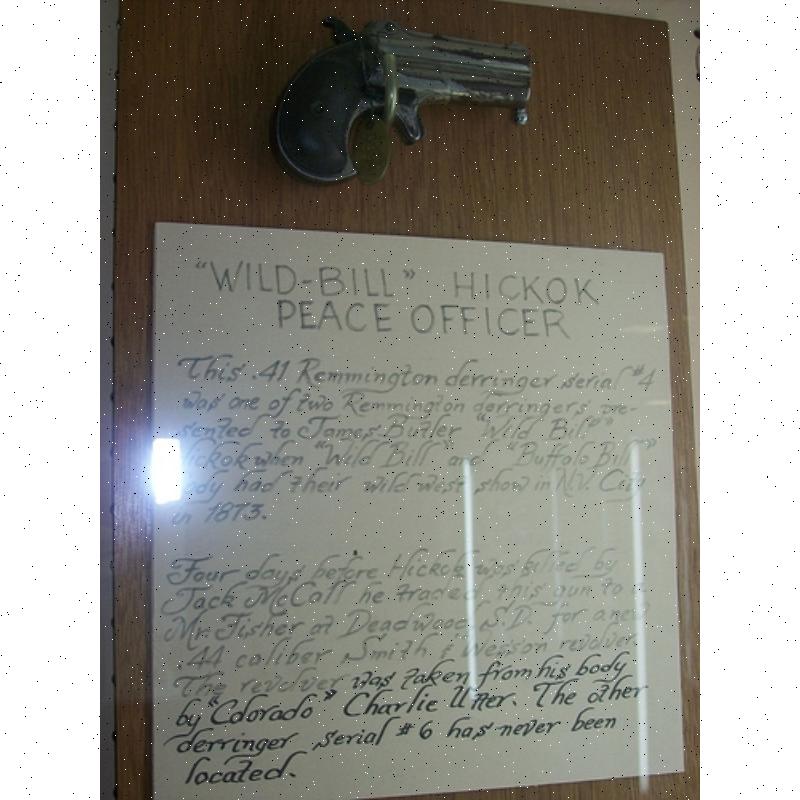 "WILD-BILL" HICKOK
PEACE OFFICER
This .41 Remmington derringer serial #4
was one of two Remmington derringers pre-
sented to James Butler "Wild Bill"
Hickok when "Wild Bill" and "Buffalo Bill"
Cody had their wild west show in N.Y. City
in 1873.
Four days before Hickok was killed by
Jack McCall he traded this gun to a
Mr. Fisher at Deadwood, S.D. for a new
.44 caliber Smith & Wesson revolver.
The revolver was taken from his body
by "Colorado" Charlie Utter. The other
derringer serial #6 has never been
located.